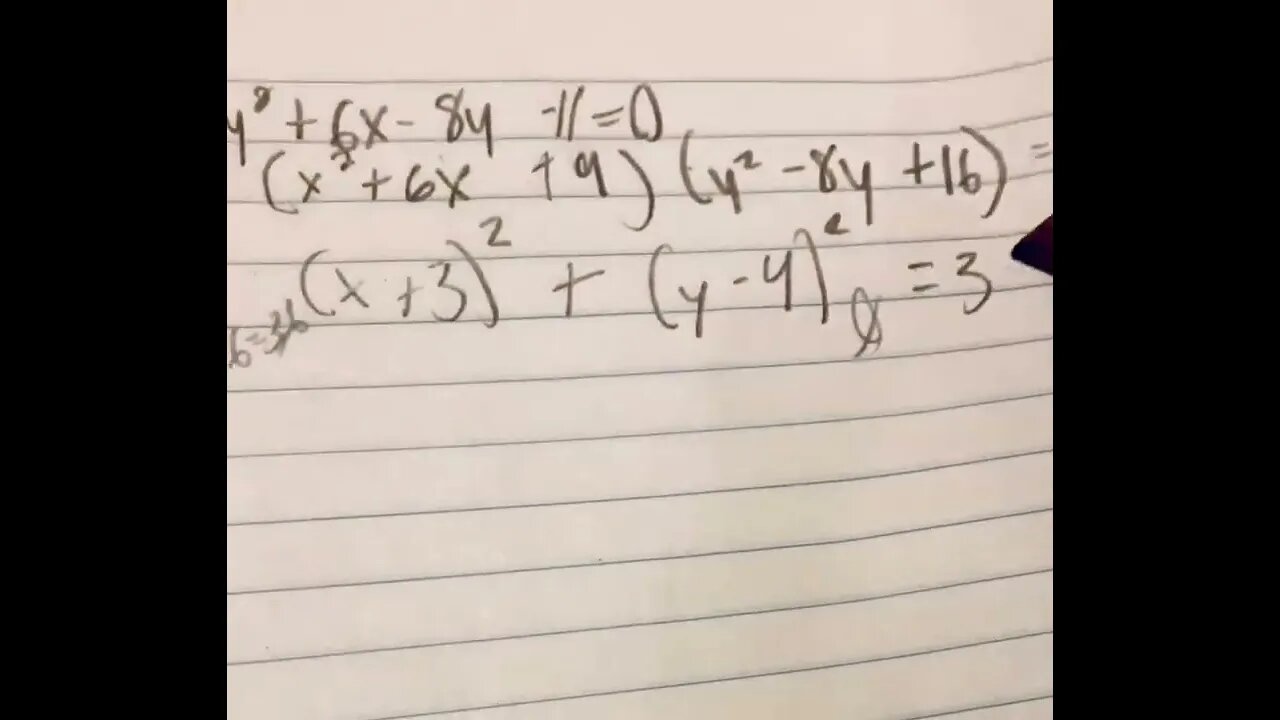 y² + 6x - 8y -11 = 0
(x² + 6x + 9) (y² - 8y + 16) =
(x + 3)² + (y - 4)² = 3
6=36